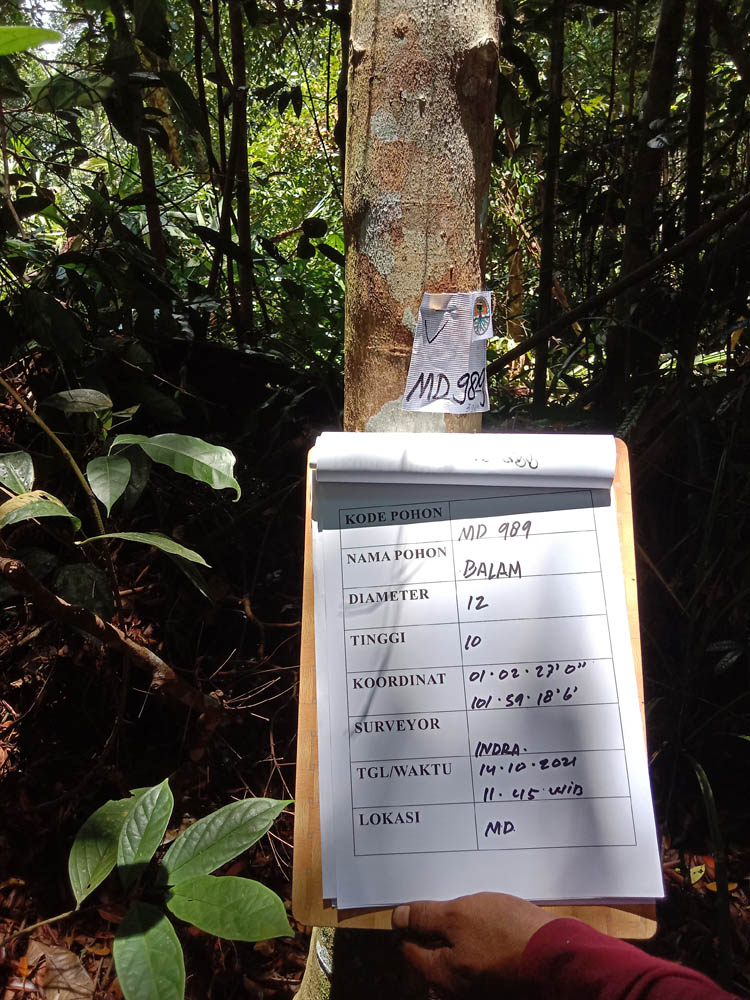 MD 989
KODE POHON MD 989
NAMA POHON BALAM
DIAMETER 12
TINGGI 10
KOORDINAT 01·02·27'0"
101·59·18'6'
SURVEYOR INDRA.
TGL/WAKTU 14·10·2021
11·45 WIB
LOKASI MD.